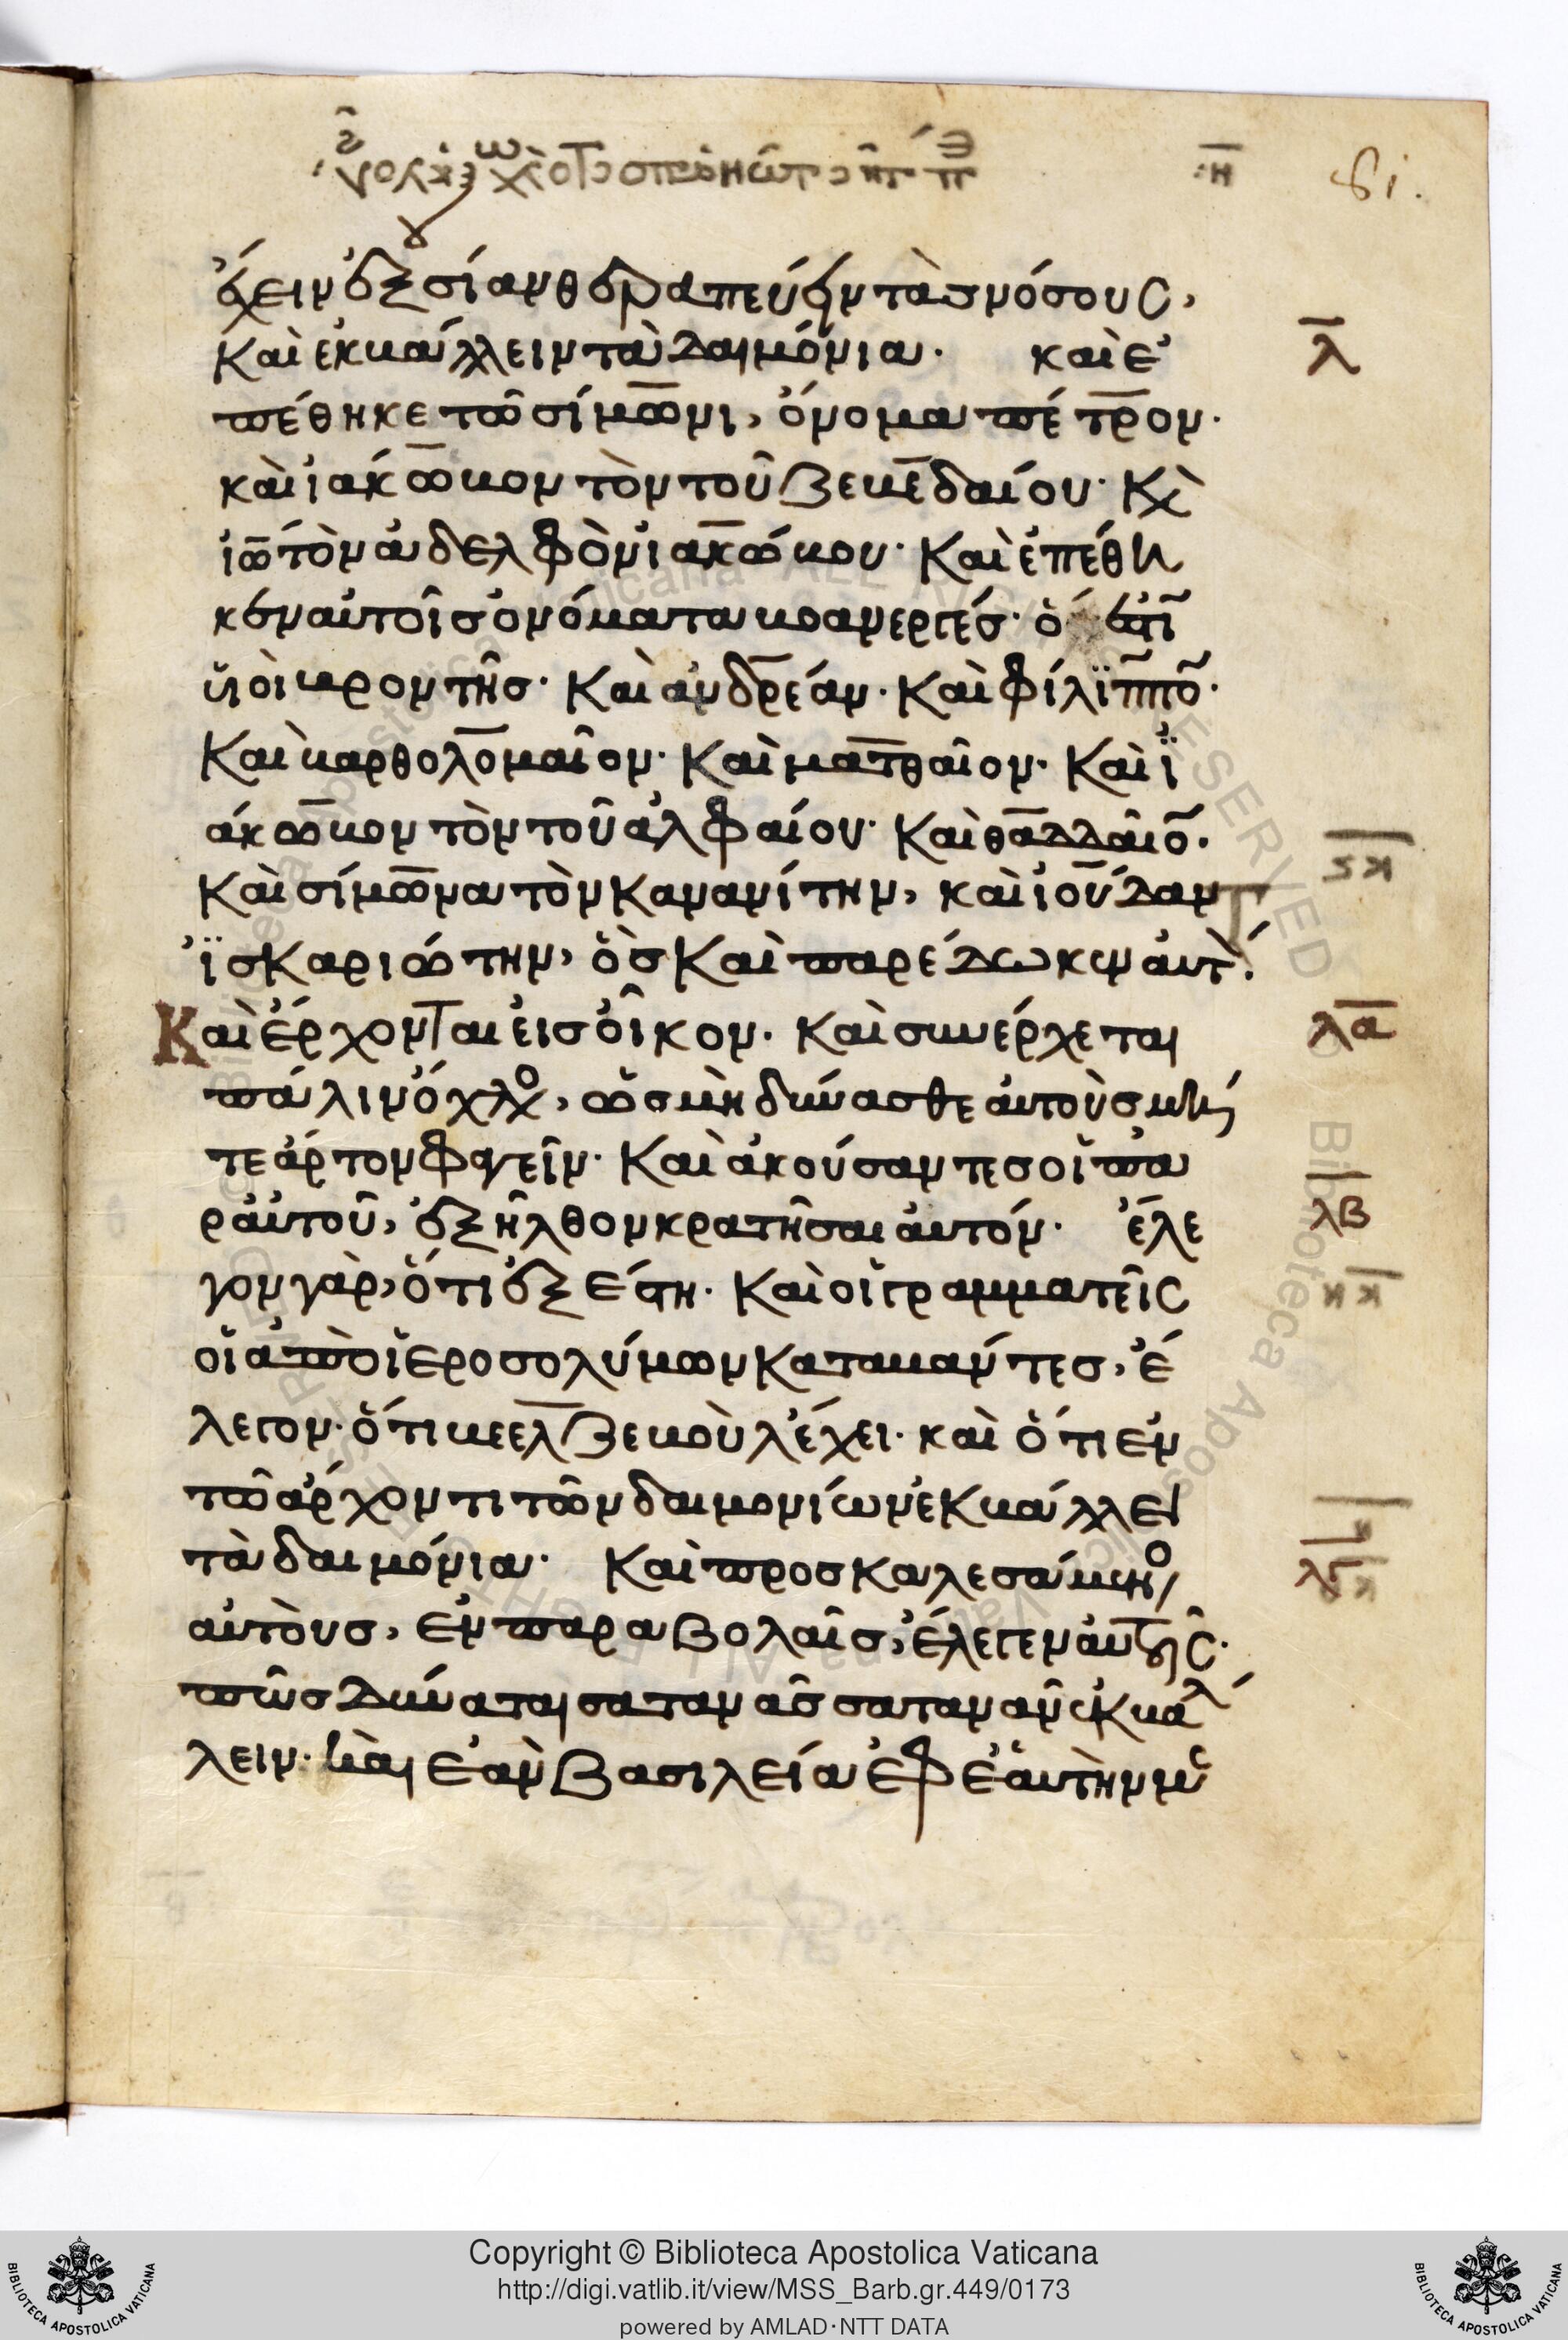 81.
ἔχειν ἐξουσίαν θεραπεύειν τὰς νόσους,
καὶ ἐκβάλλειν τὰ δαιμόνια· καὶ ἐ
λ
πέθηκε τῶ σίμωνι, ὄνομα πέτρον·
καὶ ἰάκωβον τὸν τοῦ ζεβεδαίου· κὶ
ἰω τὸν ἀδελφὸν ἰακώβου· καὶ ἐπέθη
κεν αὐτοῖς ὀνόματα βοανεργές· ὅ ἐστι
ὑιοὶ βροντῆς· καὶ ἀνδρέαν· καὶ φίλιππο̅·
καὶ βαρθολομαῖον· καὶ ματθαῖον· καὶ ἰ
άκωβον τὸν τοῦ ἀλφαίου· καὶ θαδδαῖο̅·
καὶ σίμωνα τὸν κανανίτην, καὶ ἰούδαν
ἰσκαριώτην, ὃς καὶ παρέδωκεν αὐτὸ·
Καὶ ἔρχονται εἰς οἶκον· καὶ συνέρχεται
λα
πάλιν ὄχλο, ὥς μὴ δύνασθε αὐτοὺς μή
τε ἄρτον φαγεῖν· καὶ ἀκούσαντες οἱ πα
ρ αὐτοῦ, ἐξῆλθον κρατῆσαι αὐτόν· ἔλε
λβ
γον γὰρ, ὅτι ἐξέστη· καὶ οἱ γραμματεῖς
οἱ ἀπὸ ἱεροσολύμων καταβάντες, ἔ
λεγον· ὅτι βεελζεβοὺλ ἔχει· καὶ ὅτι ἐν
τῶ ἄρχοντι τῶν δαιμονίων ἐκβάλλει
τὰ δαιμόνια· καὶ προσκαλεσάμενο
λγ
αὐτοὺς, ἐν παραβολαῖς, ἔλεγεν αὐτοῖς·
πῶς δύναται σατανᾶς σατανᾶν ἐκβάλ
λειν· καὶ ἐὰν βασιλεία ἐφ ἑαυτὴν με
Copyright © Biblioteca Apostolica Vaticana
http://digi.vatlib.it/view/MSS_Barb.gr.449/0173
powered by AMLAD·NTT DATA
BIBLIOTECA APOSTOLICA VATICANA
BIBLIOTECA APOSTOLICA VATICANA